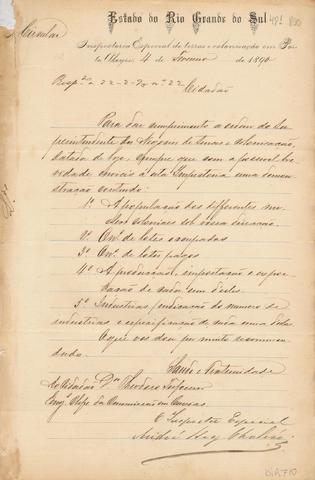 Circular
Estado do Rio Grande do Sul
Inspectoria Especial de terras e colonisação em Por-
to Alegre, 4 de Fevereiro de 1890
22-2-90 nº 22
Cidadão
Para dar cumprimento a ordem do Su-
perintendente dos Negocios de terras e colonisação,
datada de hoje, cumpre que com a possivel bre-
vidade envieis a esta Inspectoria uma demon-
stração contendo:
1º A população dos differentes nu-
cleos coloniaes sob vossa direcção.
2º O nº de lotes occupados
3º O nº de lotes pagos
4º A producção, importação e expor-
tação de cada um delles.
5º Industrias, indicação do numero de
industrias e especificação de cada uma dellas
O que vos dou por muito recommen-
dado.
Saude e fraternidade
Ao Cidadão Dr. Theodoro
Engº Chefe da Commissão em
O Inspector Especial
DIR710